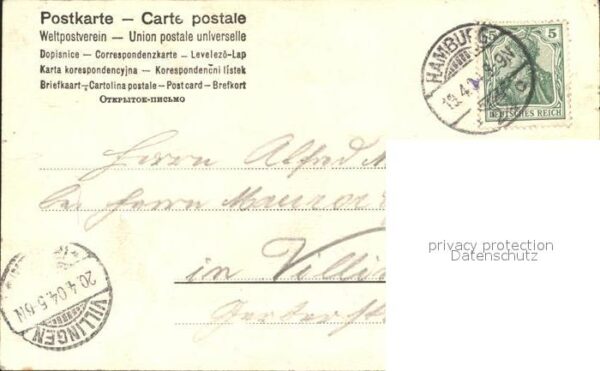 Postkarte — Carte postale
Weltpostverein — Union postale universelle
Dopisnice — Correspondenzkarte — Levelező-Lap
Karta korespondencyjna — Korespondenční lístek
Briefkaart - Cartolina postale - Post card - Brefkort
Открытое письмо
HAMBURG
5
DEUTSCHES REICH
Herrn Alfred
bei Herrn
in Villin
privacy protection
Datenschutz
20.4.04.5-6N
VILLINGEN